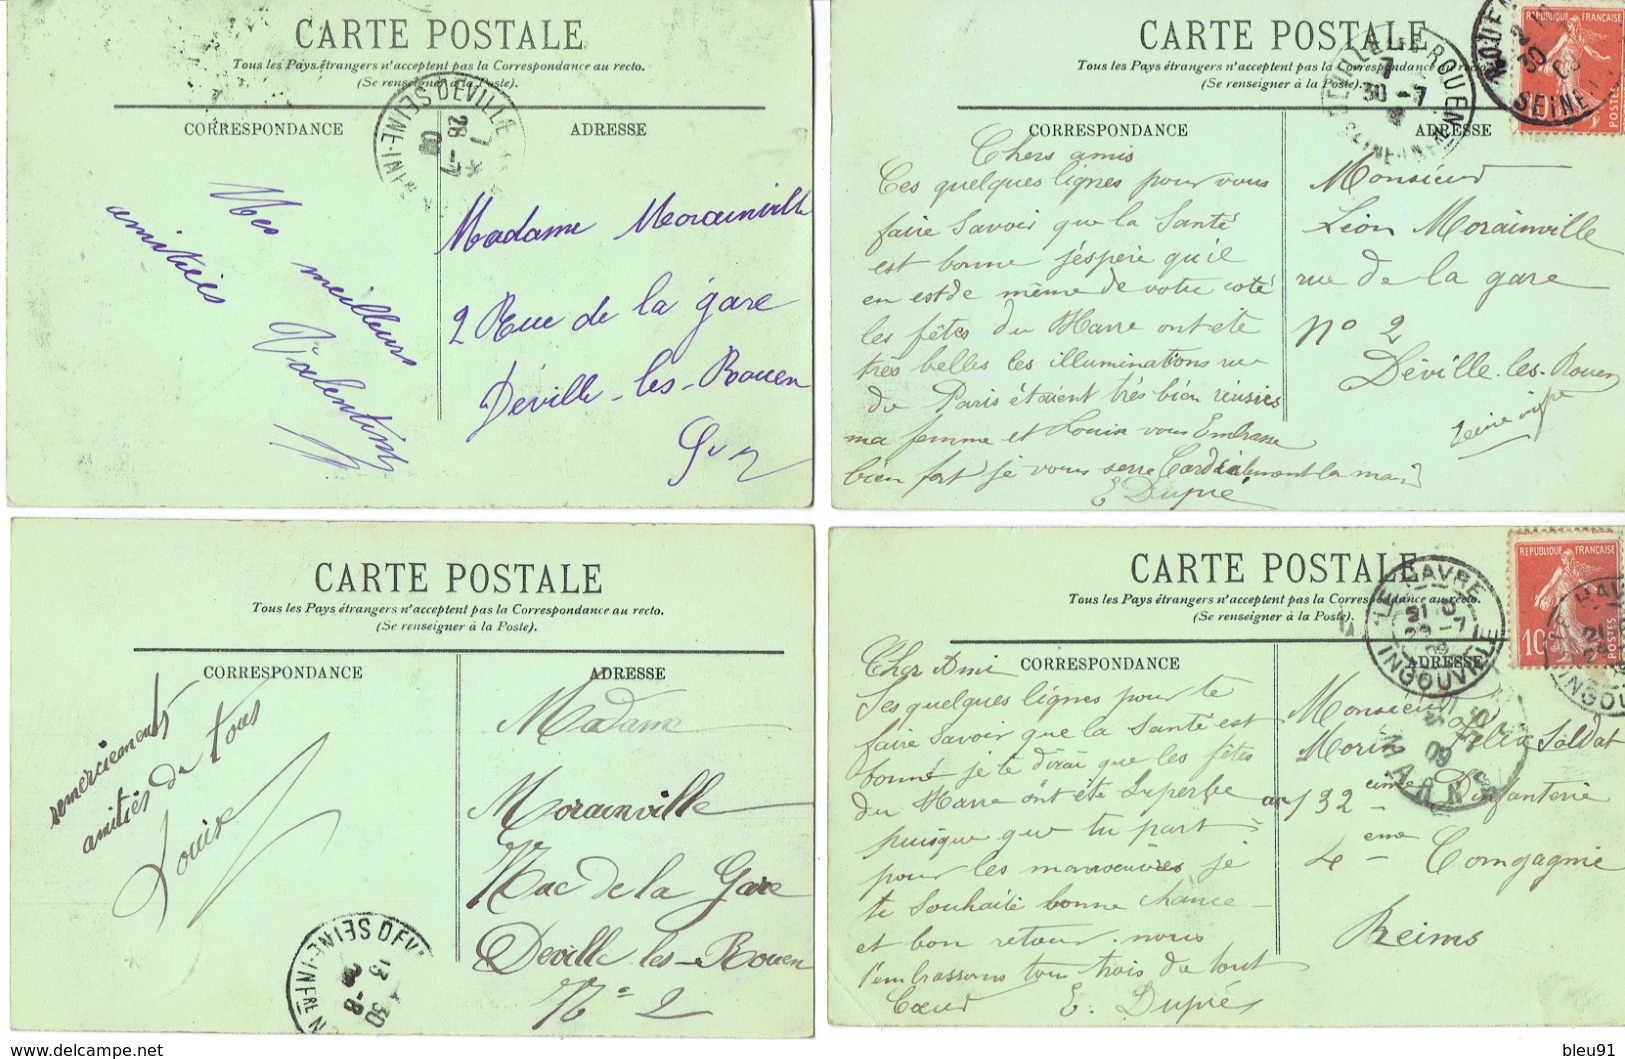 CARTE POSTALE
Tous les Pays étrangers n'acceptent pas la Correspondance au recto.
(Se renseigner à la Poste).
CORRESPONDANCE
ADRESSE
SEINE-INFRE DEVILLE
7
28 -7
09
Mes meilleurs
amitiés
Valentine
Madame Morainville
2 Rue de la gare
Déville-les-Rouen
CARTE POSTALE
Tous les Pays étrangers n'acceptent pas la Correspondance au recto.
(Se renseigner à la Poste).
CORRESPONDANCE
ADRESSE
7
30 -7
ROUEN
SEINE
REPUBLIQUE FRANÇAISE
POSTES
Chers amis
Ces quelques lignes pour vous
faire savoir que la Santé
est bonne j'éspère qu'il
en est de même de votre coté
les fêtes du Havre ont été
très belles les illuminations rue
de Paris étaient très bien réusies
ma femme et Louise vous Embrasse
bien fort je vous serre Cordialement la main
E Dupré
Monsieur
Léon Morainville
rue de la gare
n° 2
Déville-les-Rouen
Seine infre
CARTE POSTALE
Tous les Pays étrangers n'acceptent pas la Correspondance au recto.
(Se renseigner à la Poste).
CORRESPONDANCE
ADRESSE
remerciements
amitiés de tous
Louise
SEINE-INFRE DEVI
13 30
Madame
Morainville
Rue de la Gare
Deville les-Rouen
N° 2
CARTE POSTALE
Tous les Pays étrangers n'acceptent pas la Correspondance au recto.
(Se renseigner à la Poste).
CORRESPONDANCE
ADRESSE
LE HAVRE
INGOUVILLE
09
MARNE
REPUBLIQUE FRANÇAISE
10
POSTES
Cher Ami
Ses quelques lignes pour te
faire savoir que la santé est
bonne je te dirai que les fêtes
du Havre ont été Superbe
puisque que tu part
pour les manoeuvres je
te souhaite bonne chance
et bon retour. nous
t'embrassons tous trois de tout
Cœur E. Dupré
Monsieur
Morin Félix Soldat
au 132 eme D'infanterie
4 eme Compagnie
Reims
bleu91
www.delcampe.net